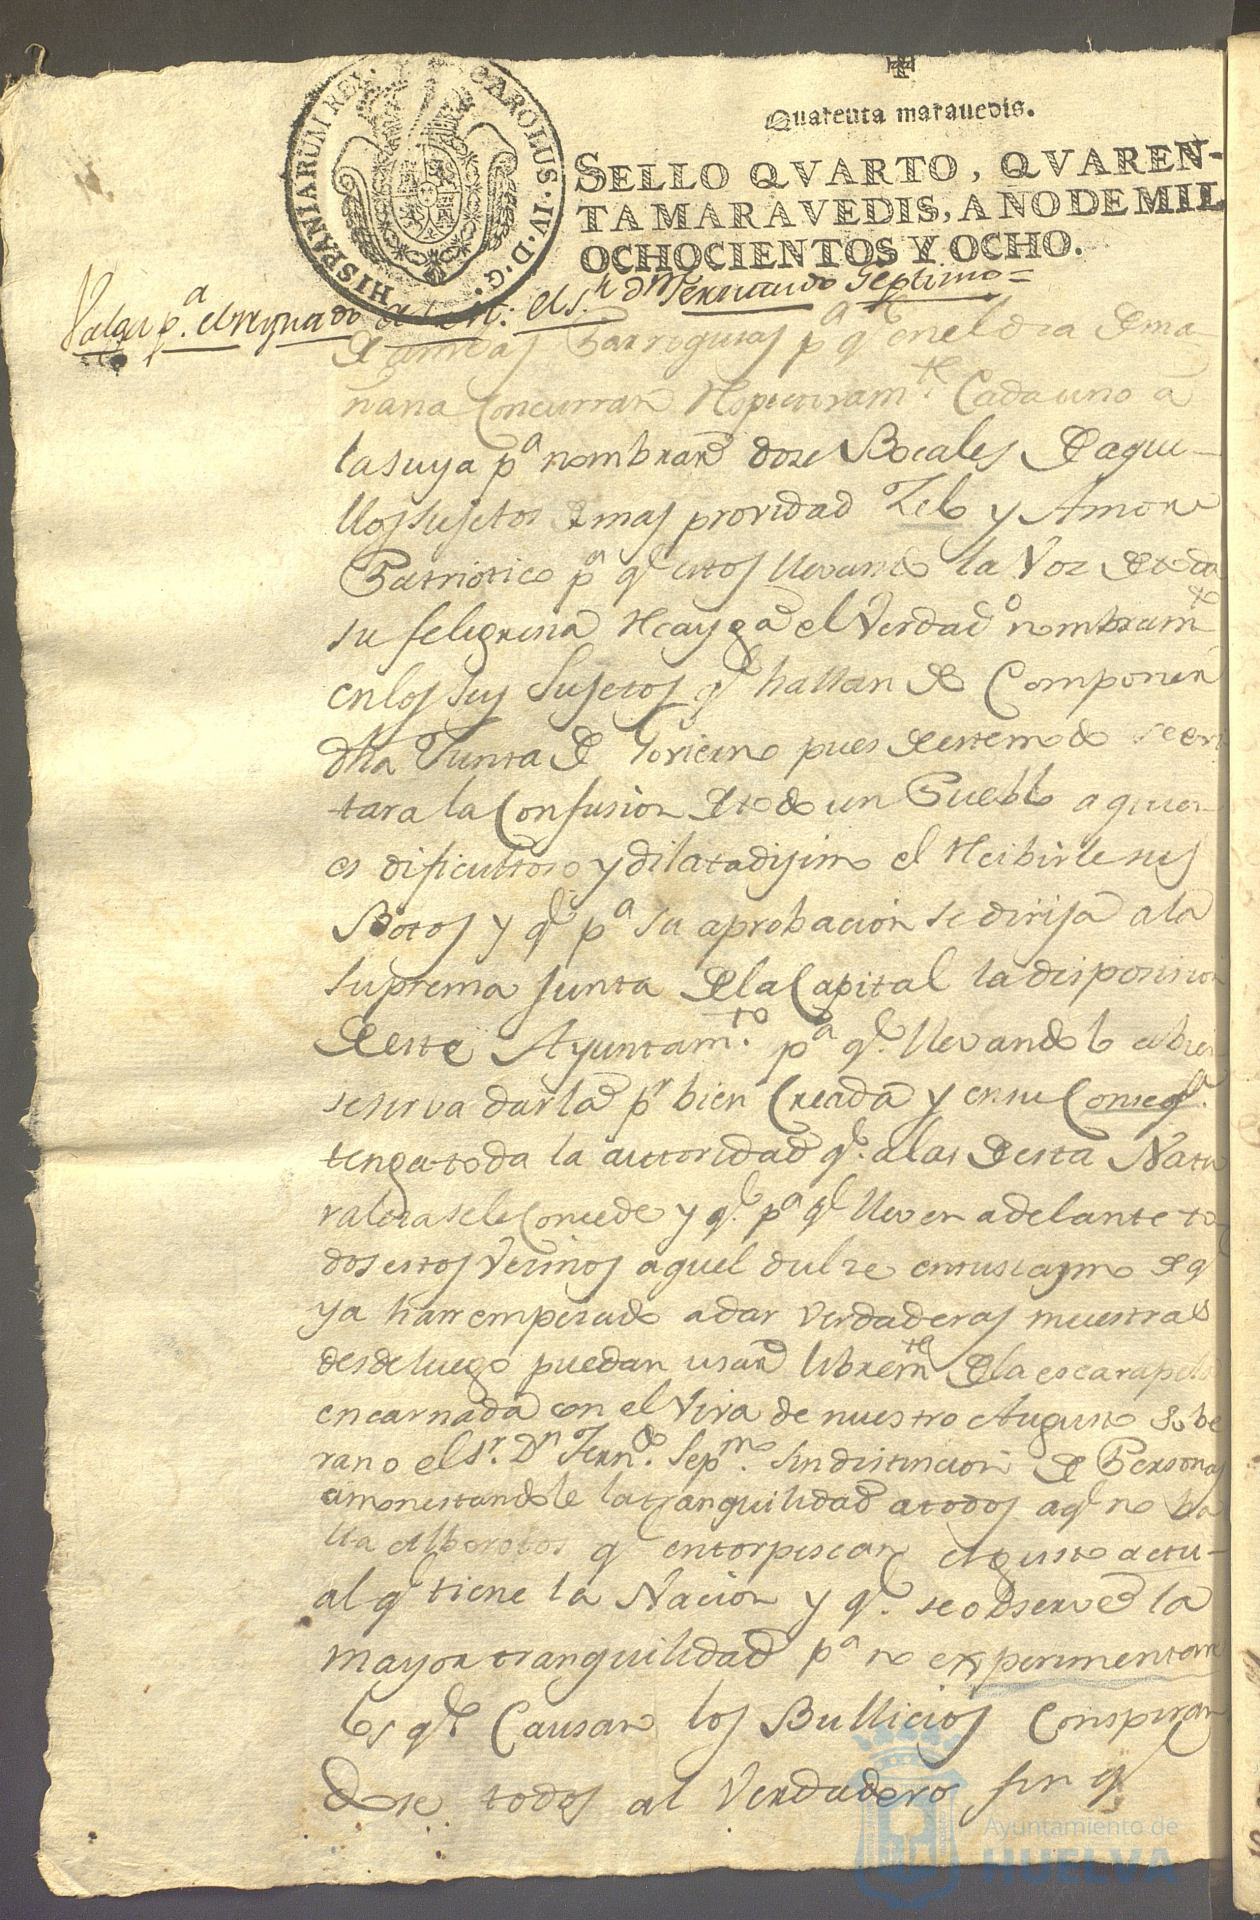 HISPANIARUM REX. CAROLUS. IV. D. G.
Quarenta maravedis.
SELLO QVARTO, QVAREN-
TA MARAVEDIS, AÑO DE MIL
OCHOCIENTOS Y OCHO.
Valga p.a el reynado de S.M. el S.r dn Fernando Septimo=
De ambas Parroquias p.a q.e en el dia De ma-
ñana Concurran Respectivam.te Cada uno a
la suya p.a nombrar doze Bocales De aque-
llos sujetos De mas providad Zelo y Amor
Patriotico p.a q.e estos llevando la Voz De toda
su feligresia Recayga el Verdad.o nombram.to
en los seis Sujetos q.e hallan De Componer
dha Junta De Govierno pues De este modo se evi
tara la Confusion De todo un Pueblo a quien
es dificultoso y dilatadisimo el Recibirle sus
Botos y q.e p.a su aprobacion se dirija a la
suprema Junta De la Capital la disposicion
De este Ayuntam.to p.a q.e llevandolo a bien
se sirva darla p.r bien Creada y en su Conseq.a
tenga toda la autoridad q.e a las De esta Natu
raleza se le Concede y q.e p.a q.e lleven adelante to-
dos estos Vecinos aquel dulze entusiasmo De q.e
ya han empezado a dar Verdaderas muestras
desde luego puedan usar librem.te De la escarapela
encarnada con el Viva de nuestro Augusto Sobe
rano el S.r D.n Fern.do Sep.mo sin distincion De Personas
amonestandole la tranquilidad a todos a q.e no ha
lla Alborotos q.e entorpescan el gusto actu-
al q.e tiene la Nacion y q.e se observe la
mayor tranquilidad p.a no experimentar
los q.e Causan los Bullicios Conspiran
dose todos al Verdadero fin q.e
Ayuntamiento de
HUELVA